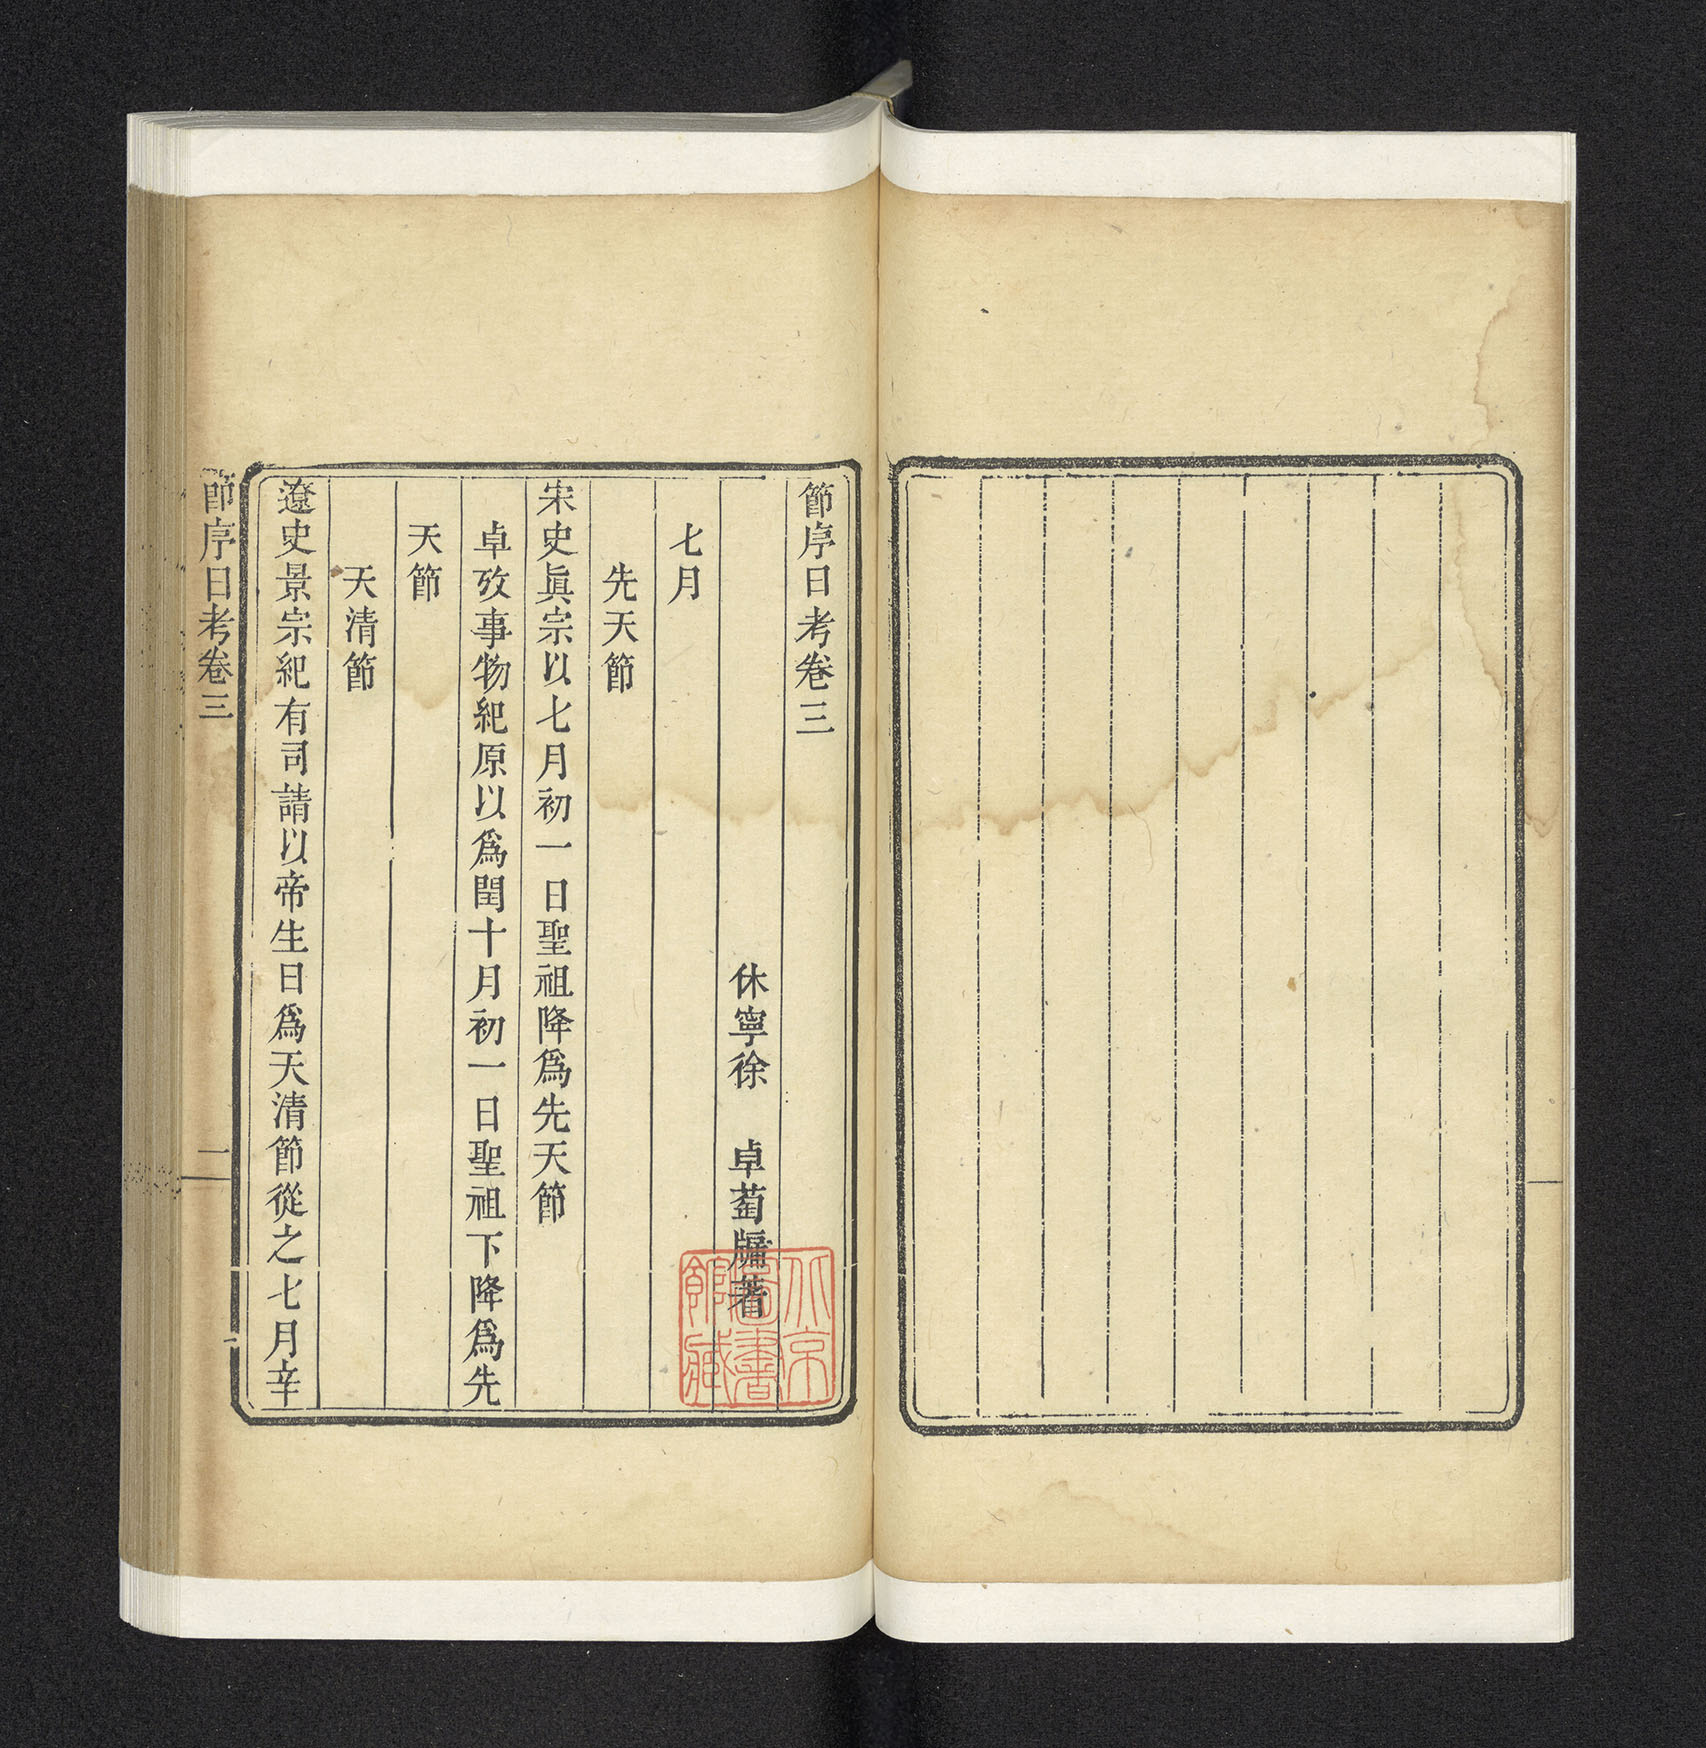 節序日考卷三
休寧徐　卓萄牖著
七月
先天節
宋史眞宗以七月初一日聖祖降爲先天節
卓攷事物紀原以爲閏十月初一日聖祖下降爲先
天節
天清節
遼史景宗紀有司請以帝生日爲天清節從之七月辛
節序日考卷三
一
北京
圖書
館藏